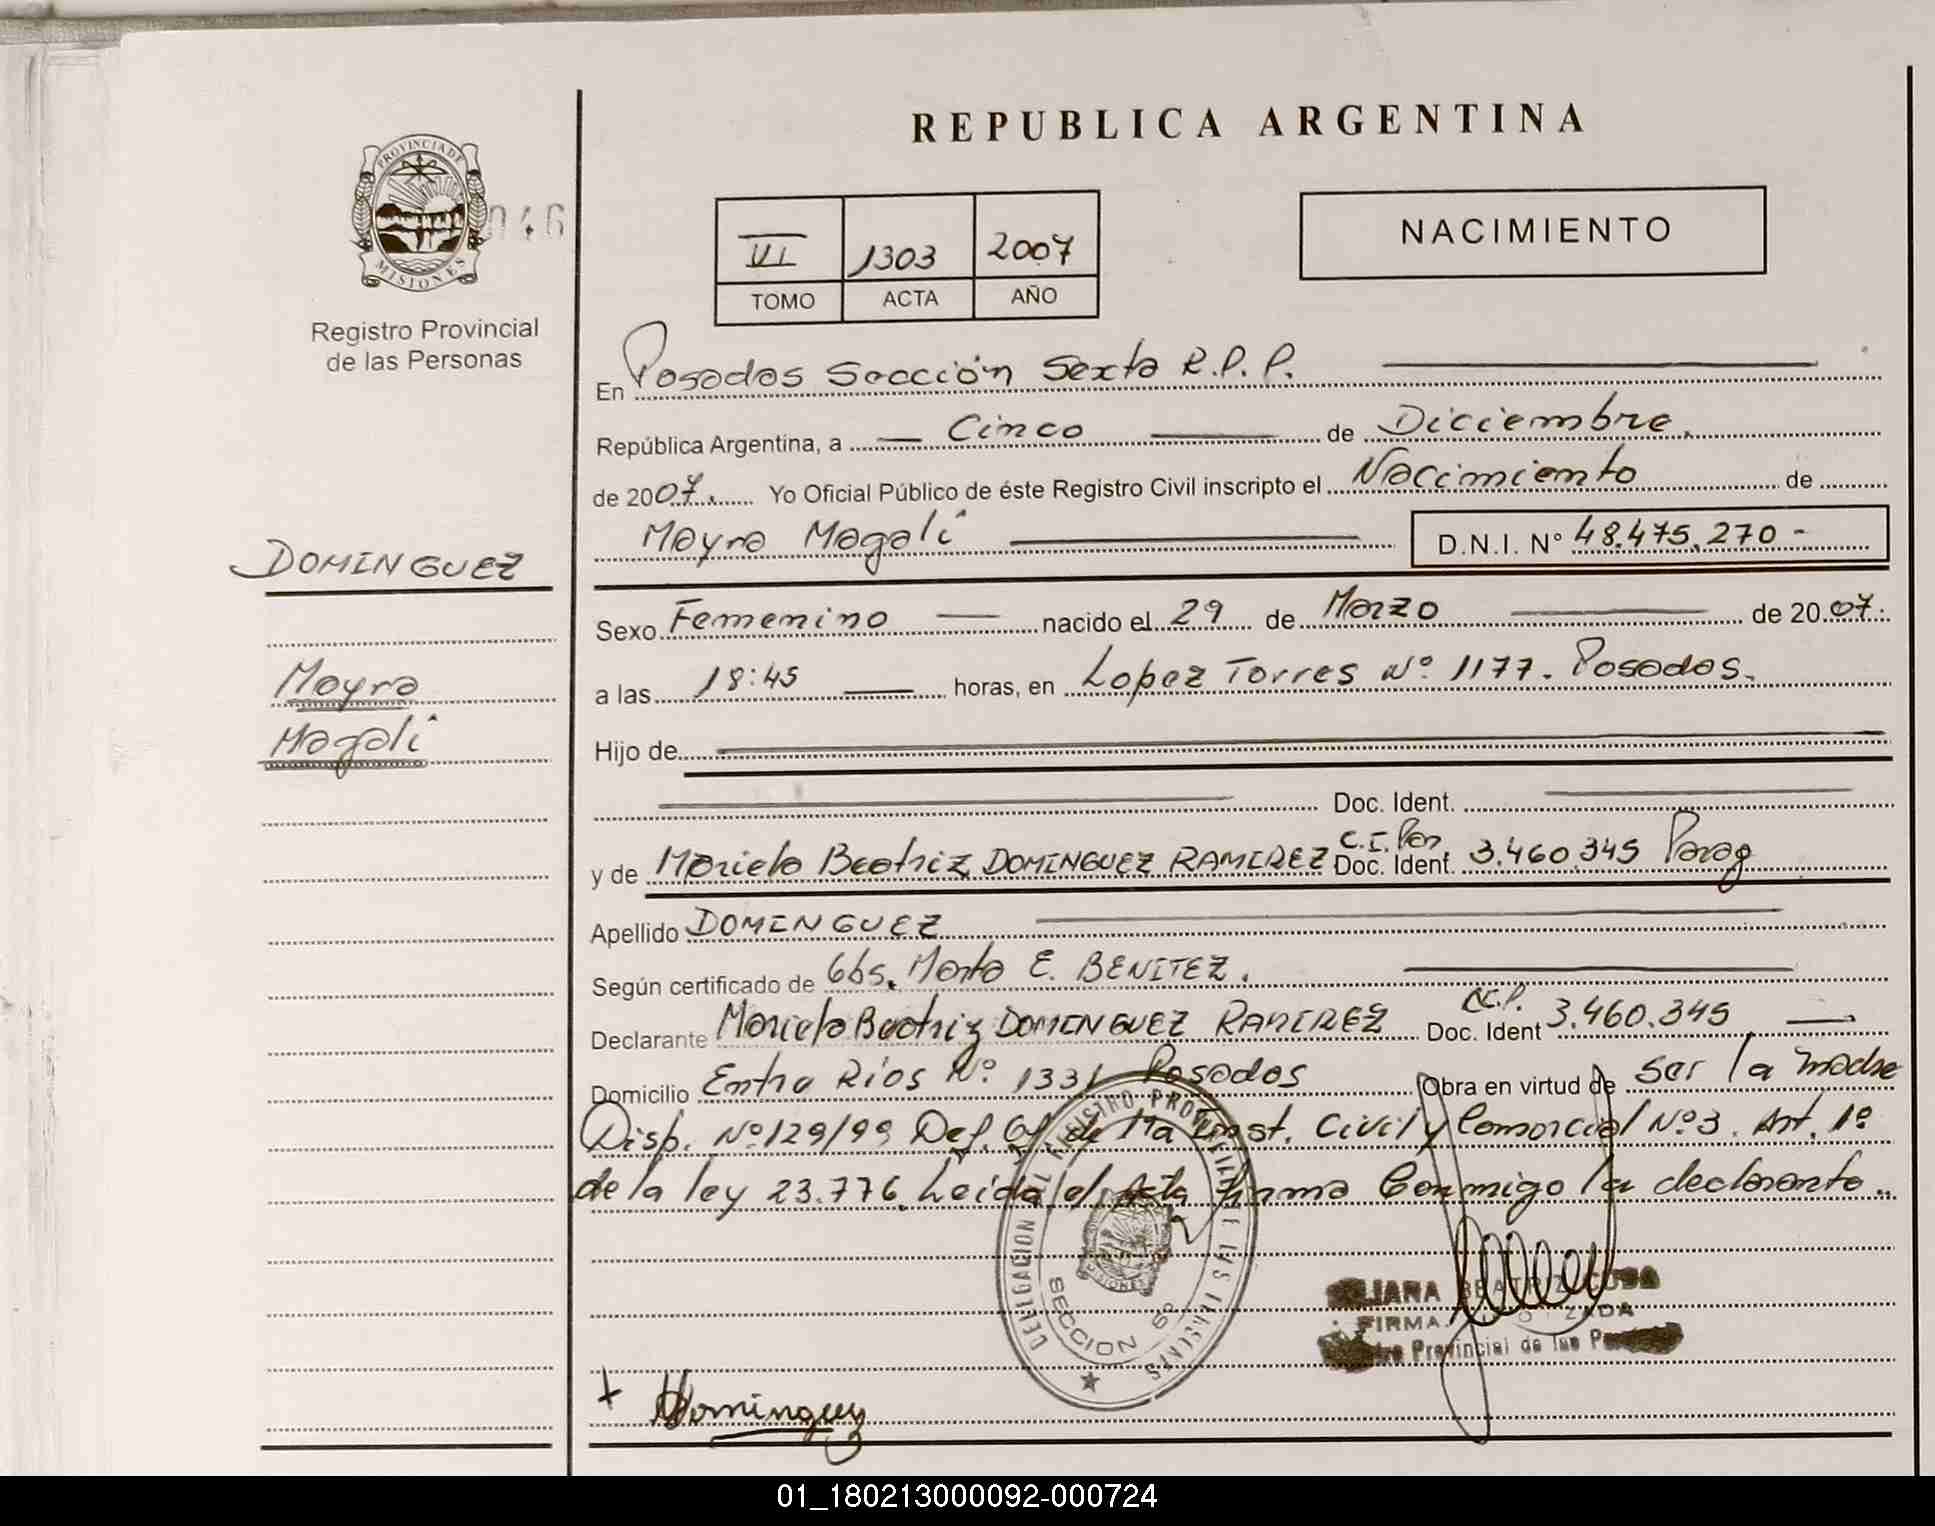 REPUBLICA ARGENTINA
PROVINCIA DE
MISIONES
046
Registro Provincial
de las Personas
VI 1303 2007
TOMO ACTA AÑO
NACIMIENTO
En Posadas Sección Sexta R.P.P.
República Argentina, a Cinco de Diciembre.
de 2007. Yo Oficial Público de éste Registro Civil inscripto el Nacimiento de
Mayra Magalí D.N.I. N° 48.475.270 -
DOMINGUEZ
Mayra
Magalí
Sexo Femenino nacido el 29 de Marzo de 2007.
a las 18:45 horas, en Lopez Torres Nº 1177. Posadas.
Hijo de
Doc. Ident.
y de Mariela Beatriz DOMINGUEZ RAMIREZ C.I. Doc. Ident. 3.460.345 Parag
Apellido DOMINGUEZ
Según certificado de Obs. Marta E. BENITEZ.
Declarante Mariela Beatriz DOMINGUEZ RAMIREZ Doc. Ident 3.460.345
Domicilio Entre Ríos Nº 1331 Posadas Obra en virtud de ser la madre
Disp. Nº 129/99 Def. Of. de 1ra Inst. Civil y Comercial Nº 3. Art. 1º
de la ley 23.776. Leida el Acta firma Conmigo la declarante..
DELEGACION REGISTRO PROVINCIAL
SECCION 6º
BEATRIZ
FIRMA
Provincial de las
Dominguez
01_180213000092-000724